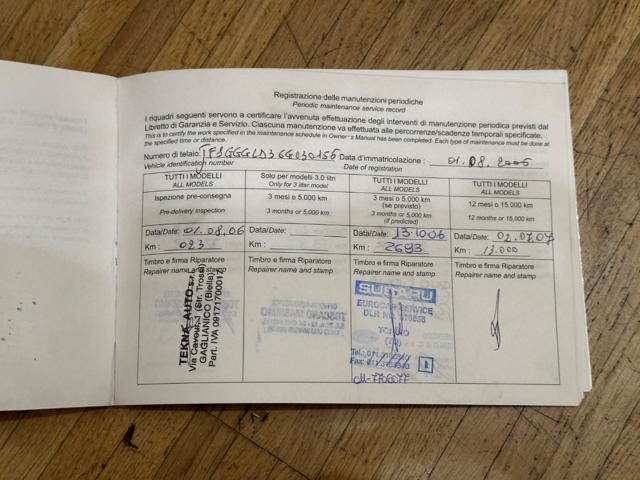 Registrazione delle manutenzioni periodiche
Periodic maintenance service record
I riquadri seguenti servono a certificare l'avvenuta effettuazione degli interventi di manutenzione periodica previsti dal
Libretto di Garanzia e Servizio. Ciascuna manutenzione va effettuata alle percorrenze/scadenze temporali specificate.
This is to certify the work specified in the maintenance schedule in Owner's Manual has been completed. Each type of maintenance must be done at
the specified time or distance.
Numero di telaio: Data d'immatricolazione : 01.08.2006
Vehicle identification number Date of registration
TUTTI I MODELLI Solo per modelli 3.0 litri TUTTI I MODELLI TUTTI I MODELLI
ALL MODELS Only for 3 liter model ALL MODELS ALL MODELS
Ispezione pre-consegna 3 mesi o 5.000 km 3 mesi o 5.000 km (se previsto) 12 mesi o 15.000 km
Pre-delivery inspection 3 months or 5,000 km 3 months or 5,000 km (if predicted) 12 months or 15,000 km
Data/Date: 01.08.06 Data/Date: Data/Date: 13.10.06 Data/Date: 02.07.07
Km : 023 Km : Km : 2693 Km : 13.000
Timbro e firma Riparatore Timbro e firma Riparatore Timbro e firma Riparatore Timbro e firma Riparatore
Repairer name and stamp Repairer name and stamp Repairer name and stamp Repairer name and stamp
TEKNA AUTO s.r.l.
Via Cavour, (Str. Trossi)
GAGLIANICO (Biella)
Part. IVA
TOSCANO MASSIMO
SUBARU
SERVICE
DLR NO.
TORINO
(TO)
Tel.:
Fax: